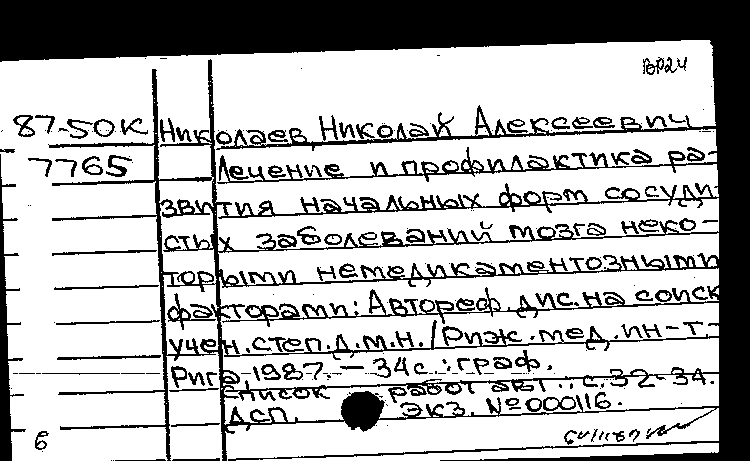 87-50К Николаев, Николай Алексеевич
7765 Лечение и профилактика ра-
звития начальных форм сосуди
стых заболеваний мозга неко-
торыми немедикаментозными
факторами: Автореф. дис. на соиск
учен. степ. д.м.н. / Риж. мед. ин-т.-
Рига, 1987. — 34с.: граф.
Список работ авт.: с. 32-34.
ДСП. Экз. № 000116.
6